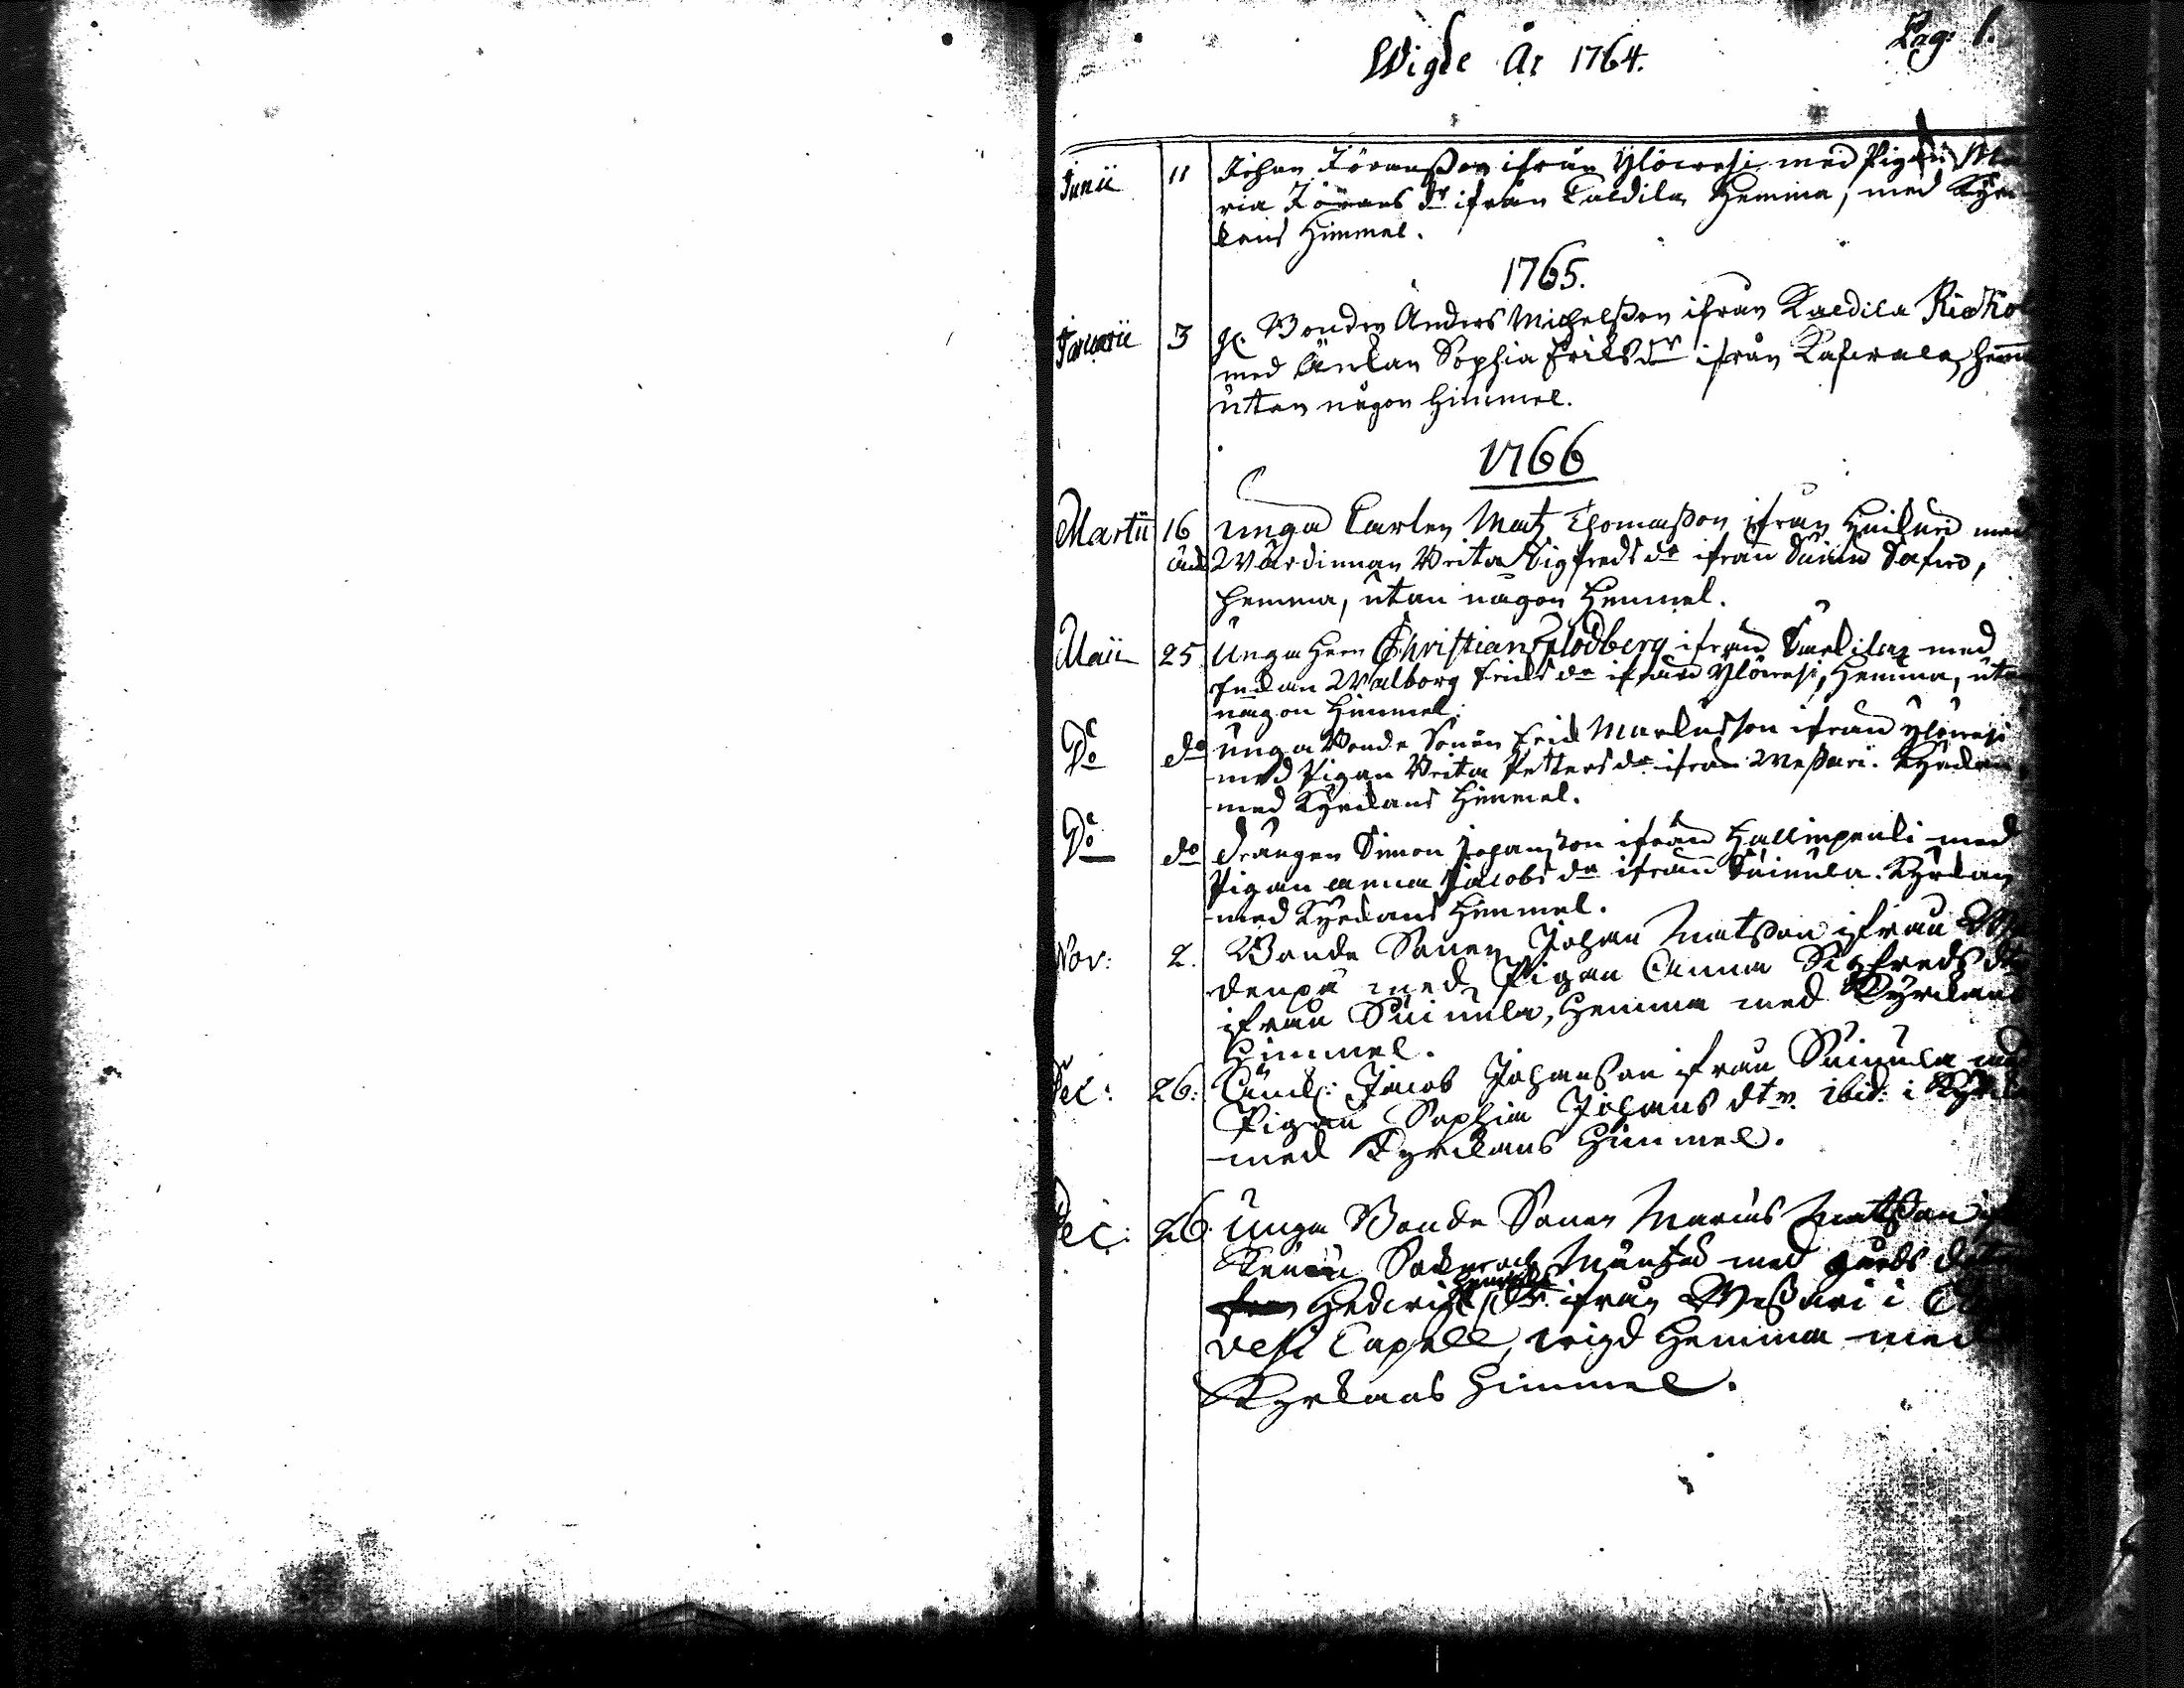 Pag: 1.
Wigde År 1764.
Junii 11 Johan Jöransson ifrån Ylöwesi med Pigan Ma
ria Jörans dr ifrån Caldila Hemma, med Kyr
kans Himmel.
1765.
Januarii 3 Bonden Anders Michelsson ifrån Kaldila Risko
med Änkan Sophia Eriks dr ifrån hem
utan någon Himmel.
1766
Martii 16 unga Carlen Matz Thomasson ifrån med
Wärdinnan Brita Sigfreds dr ifrån
hemma, utan någon Hemmel.
Maii 25 Unga Herr Christian Flodberg ifrån med
Enkan Walborg Eriks dr ifrån Ylöwesi, Hemma, uta
någon Himmel.
Do do unga Bonde Sonen Erik Markusson ifrån Ylöwesi
med Pigan Brita Petters dr ifrån Messuri. Kyrkan
med Kyrkans Himmel.
Do do drängen Simon Johansson ifrån Hallinpenki med
Pigan anna Jacobs dr ifrån Suinula. Kyrkan
med Kyrkans Himmel.
Nov: 2. Bonde Sonen Johan Matsson ifrån
denpä med Pigan Anna Sigfreds dtr
ifrån Suinula, Hemma med Kyrkans
Himmel.
Dec: 26: Jacob Johansson ifrån Suinula med
Pigan Sophia Johans dtr. ibid: i Kyrka
med Kyrkans Himmel.
Dec: 26. Unga Bonde Sonen Marcus Matsson
Sockn och med
Hedewig dr. ifrån Messuri i
vesi Capell, wigd Hemma med
Kyrkans Himmel.